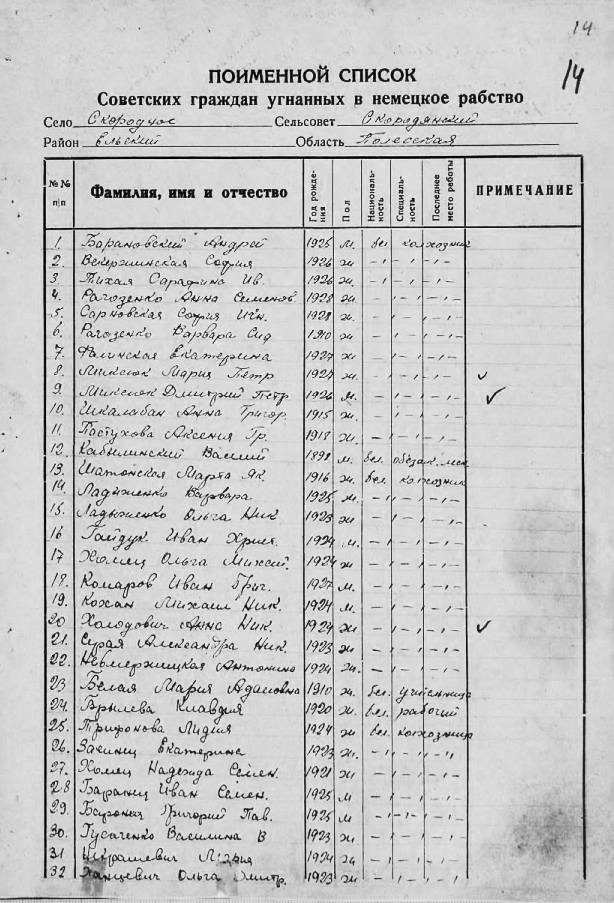 14
14
ПОИМЕННОЙ СПИСОК
Советских граждан угнанных в немецкое рабство
Село Скородное Сельсовет Скороднянский
Район Ельский Область Полесская
№№ п/п Фамилия, имя и отчество Год рождения Пол Национальность Специальность Последнее место работы ПРИМЕЧАНИЕ
1. Барановский Андрей 1925 м. бел. колхозник
2. София 1926 ж - ' - ' - ' -
3. Тихая Сарафина Ив. 1926 ж - ' - ' - ' -
4. Рагозенко Анна Семенов. 1928 ж. - ' - ' - ' -
5. Сарновская София Игн. 1928 ж. - ' - ' - ' -
6. Рагозенко Варвара Сид 1910 ж - ' - ' - ' -
7. Екатерина 1927 ж - ' - ' - ' -
8. Миксюк Мария Петр 1927 ж. - ' - ' - ' - ✓
9. Миксюк Дмитрий Петр 1926 м. - ' - ' - ' - ✓
10. Шкалабан Анна Григор. 1915 ж. - ' - ' - ' -
11. Пастухова Аксения Гр. 1918 ж. - ' - ' - ' -
12. Кабылинский Василий м. бел.
13. Шатонская Марта Як. 1916 ж. бел. колхозник
14. Ладыженко Варвара 1925 м. - ' - ' - ' -
15. Ладыженко Ольга Ник 1923 ж - ' - ' - ' -
16 Гайдук Иван 1924 м. - ' - ' - ' -
17 Хомец Ольга 1924 ж - ' - ' - ' -
18. Комаров Иван Григ. 1927 м. - ' - ' - ' -
19. Кохан Михаил Ник. 1924 м. - ' - ' - ' -
20 Холодович Анна Ник. 1924 ж - ' - ' - ' - ✓
21. Серая Александра Ник. 1923 ж - ' - ' - ' -
22. Невмержицкая Антонина 1924 ж. - ' - ' - ' -
23 Белая Мария Адамовна 1910 ж. бел. учительница
24. Брылева Клавдия 1920 ж. бел. рабочий
25. Трифонова Лидия 1924 ж бел. колхозница
26. Заяинец Екатерина 1923 ж. - " - " - "
27. Хомец Надежда Семен. 1921 ж - ' - ' - ' -
28 Баранец Иван Семен. 1925 м - ' - ' - ' -
29. Баранец Григорий Пав. 1925 м. - ' - ' - ' -
30. Гусаченко Василина В 1923 ж - ' - ' - ' -
31 Мария 1924 ж - ' - ' - ' -
32 Ханцевич Ольга Дмитр. 1923 ж - ' - ' - ' -